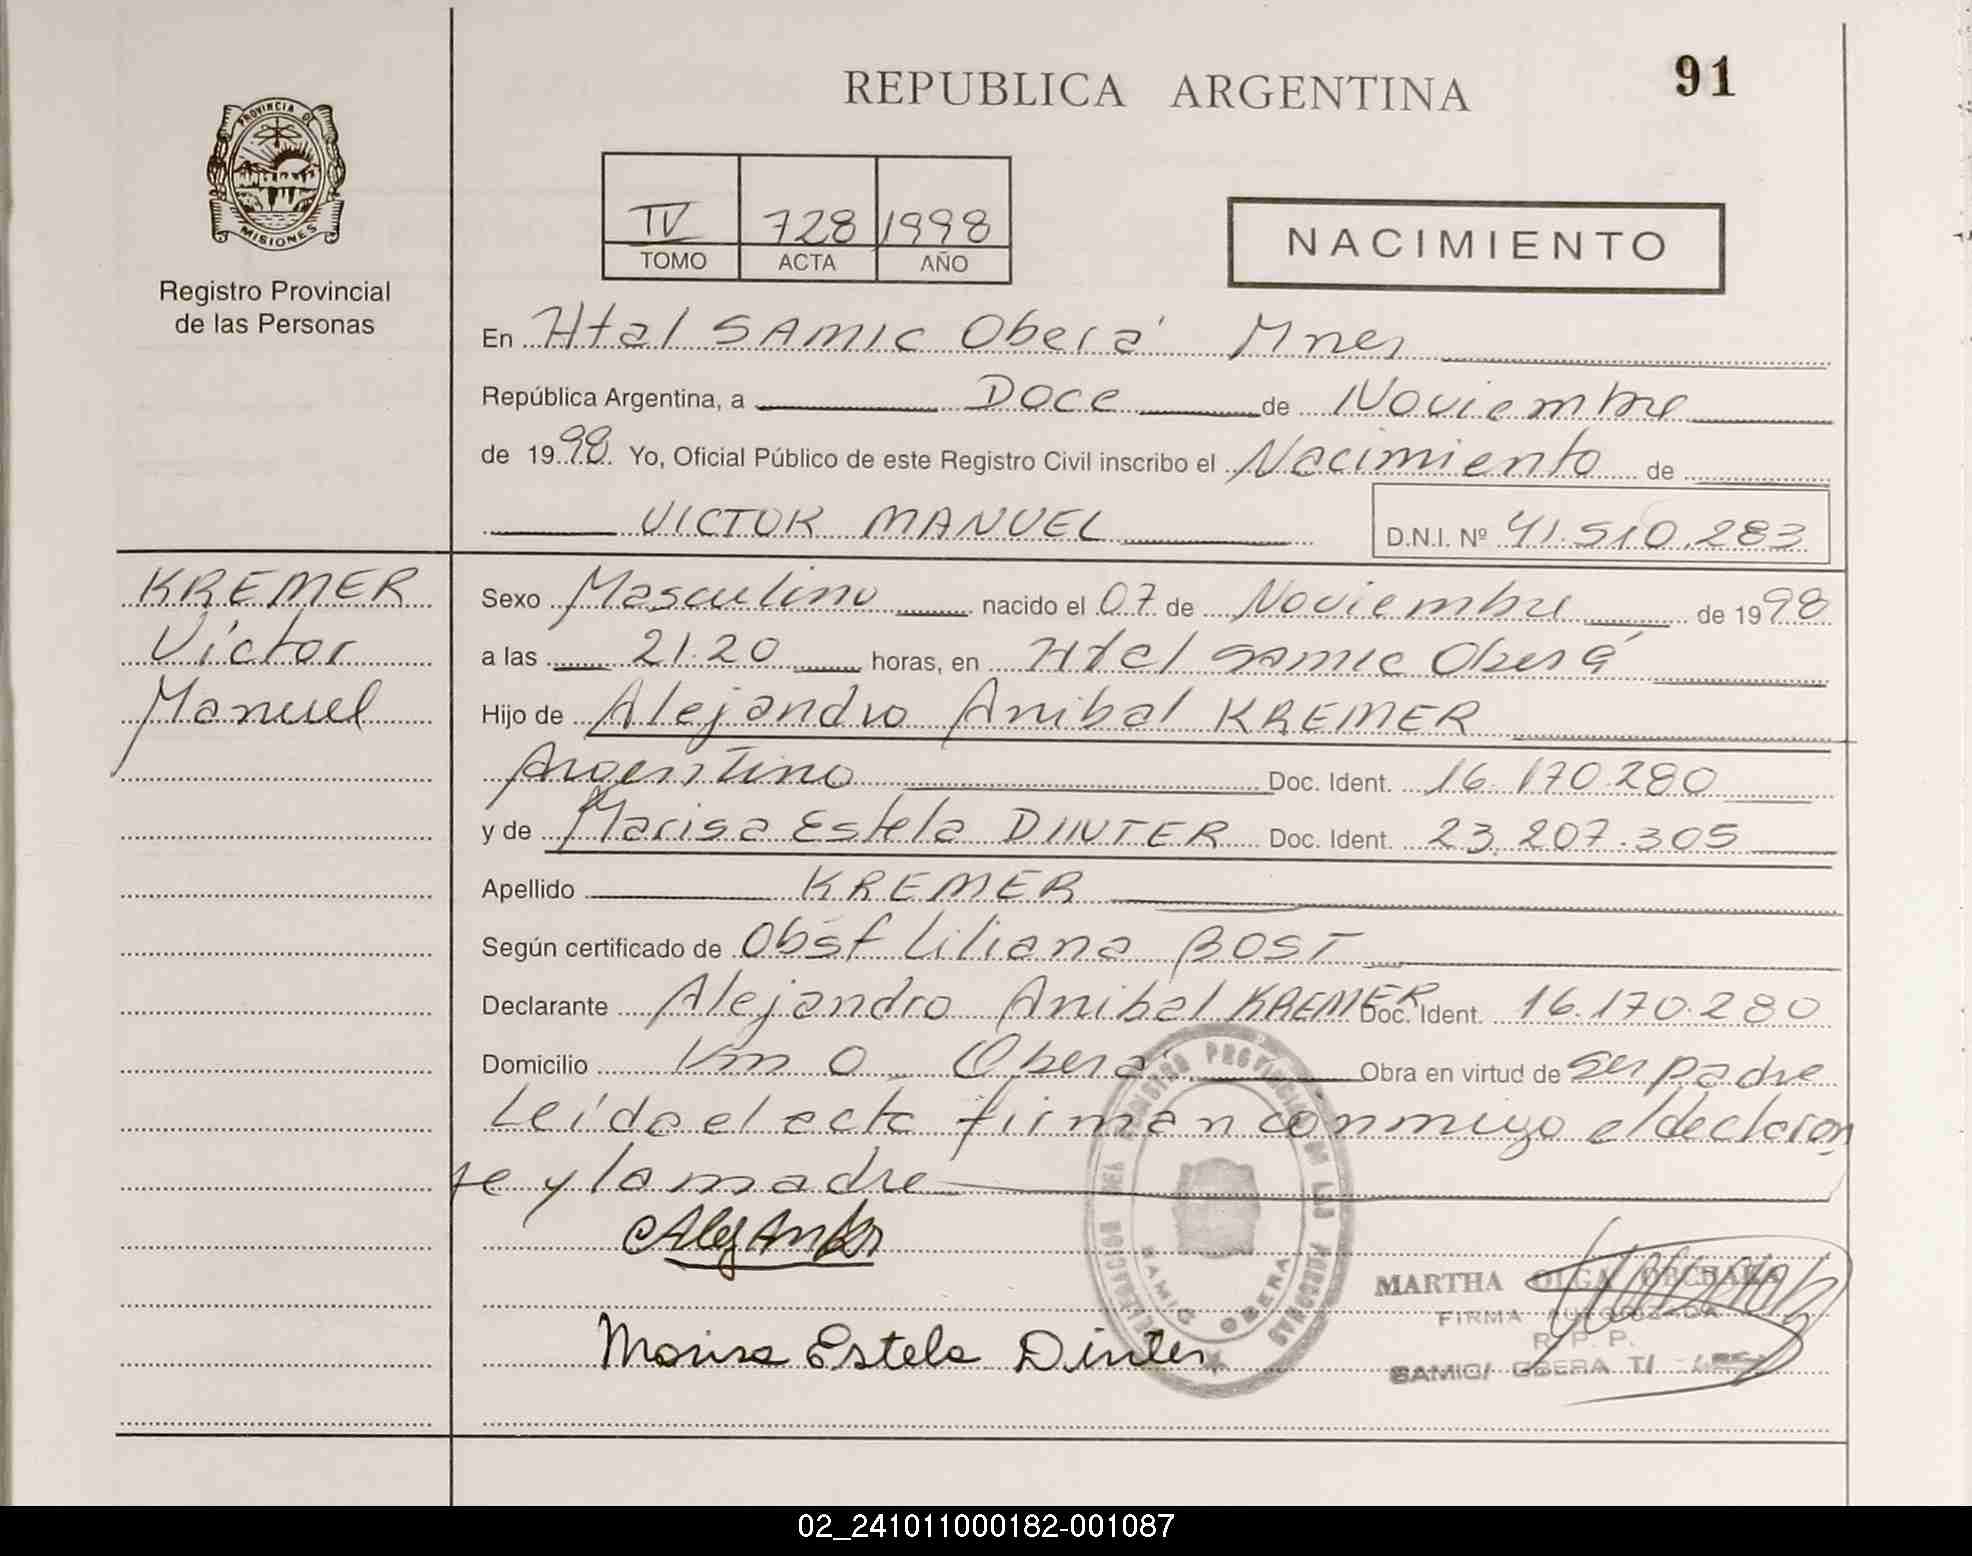 REPUBLICA ARGENTINA
91
PROVINCIA DE
MISIONES
Registro Provincial
de las Personas
IV 728 1998
TOMO ACTA AÑO
NACIMIENTO
En Htal SAMIC Oberá Mnes
República Argentina, a Doce de Noviembre
de 1998 Yo, Oficial Público de este Registro Civil inscribo el Nacimiento de
VICTOR MANUEL D.N.I. Nº 41.510.283
KREMER
Víctor
Manuel
Sexo Masculino nacido el 07 de Noviembre de 1998
a las 21.20 horas, en Htal samic Oberá
Hijo de Alejandro Anibal KREMER
Argentino Doc. Ident. 16.170.280
y de Marisa Estela DINTER Doc. Ident. 23.207.305
Apellido KREMER
Según certificado de Obst Liliana BOST
Declarante Alejandro Anibal KREMER Doc. Ident. 16.170.280
Domicilio Km 0 Oberá Obra en virtud de ser padre
Leída el acta firman conmigo el declaran
te y la madre
DELEGACION DEL REGISTRO PROVINCIAL DE LAS PERSONAS
SAMIC OBERA
MARTHA OLGA
FIRMA AUTORIZADA
R. P. P.
SAMIC/ OBERA
Marisa Estela Dinter
02_241011000182-001087